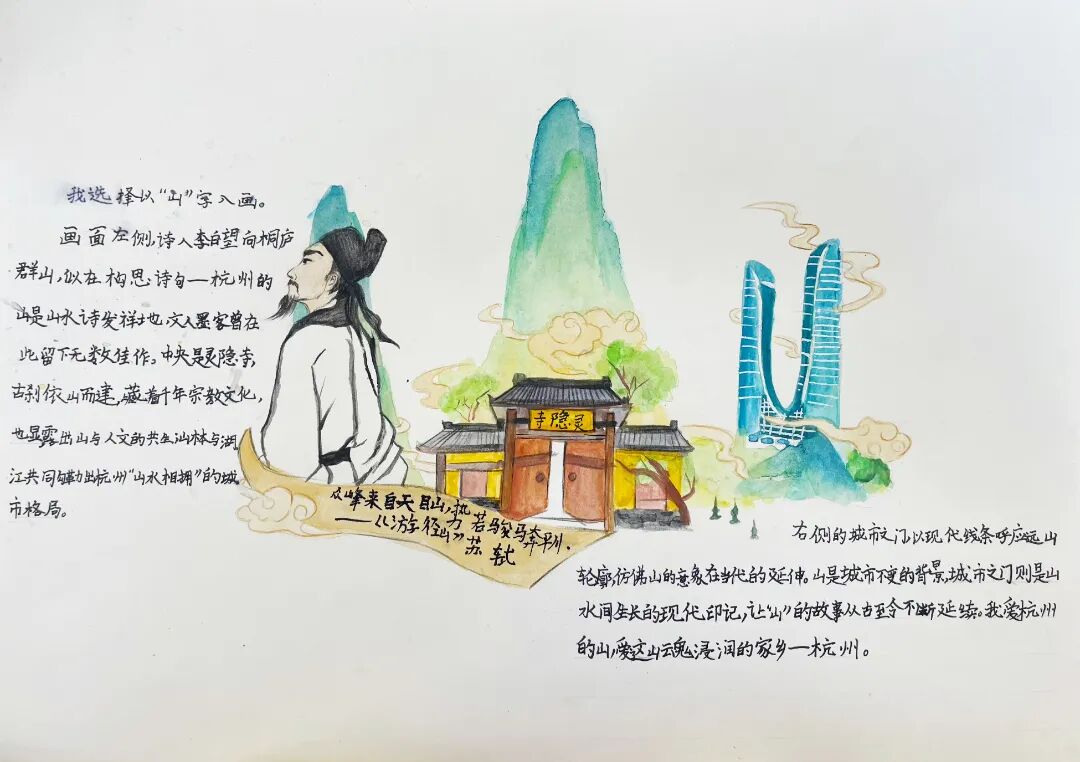 我选择以“山”字入画。
画面左侧,诗人李白望向桐庐
群山,似在构思诗句—杭州的
山是山水诗发祥地,文人墨客曾在
此留下无数佳作。中央是灵隐寺,
古刹依山而建,藏着千年宗教文化,
也显露出山与人文的共生,山林与湖
江共同勾勒出杭州“山水相拥”的城
市格局。
灵隐寺
众峰来自天目山,势若骏马奔平川.
——《游径山》苏轼
右侧的城市之门以现代线条呼应远山
轮廓,仿佛山的意象在当代的延伸。山是城市不变的背景,城市之门则是山
水间生长的现代印记,让“山”的故事从古至今不断延续。我爱杭州
的山,爱这山云魂浸润的家乡—杭州。